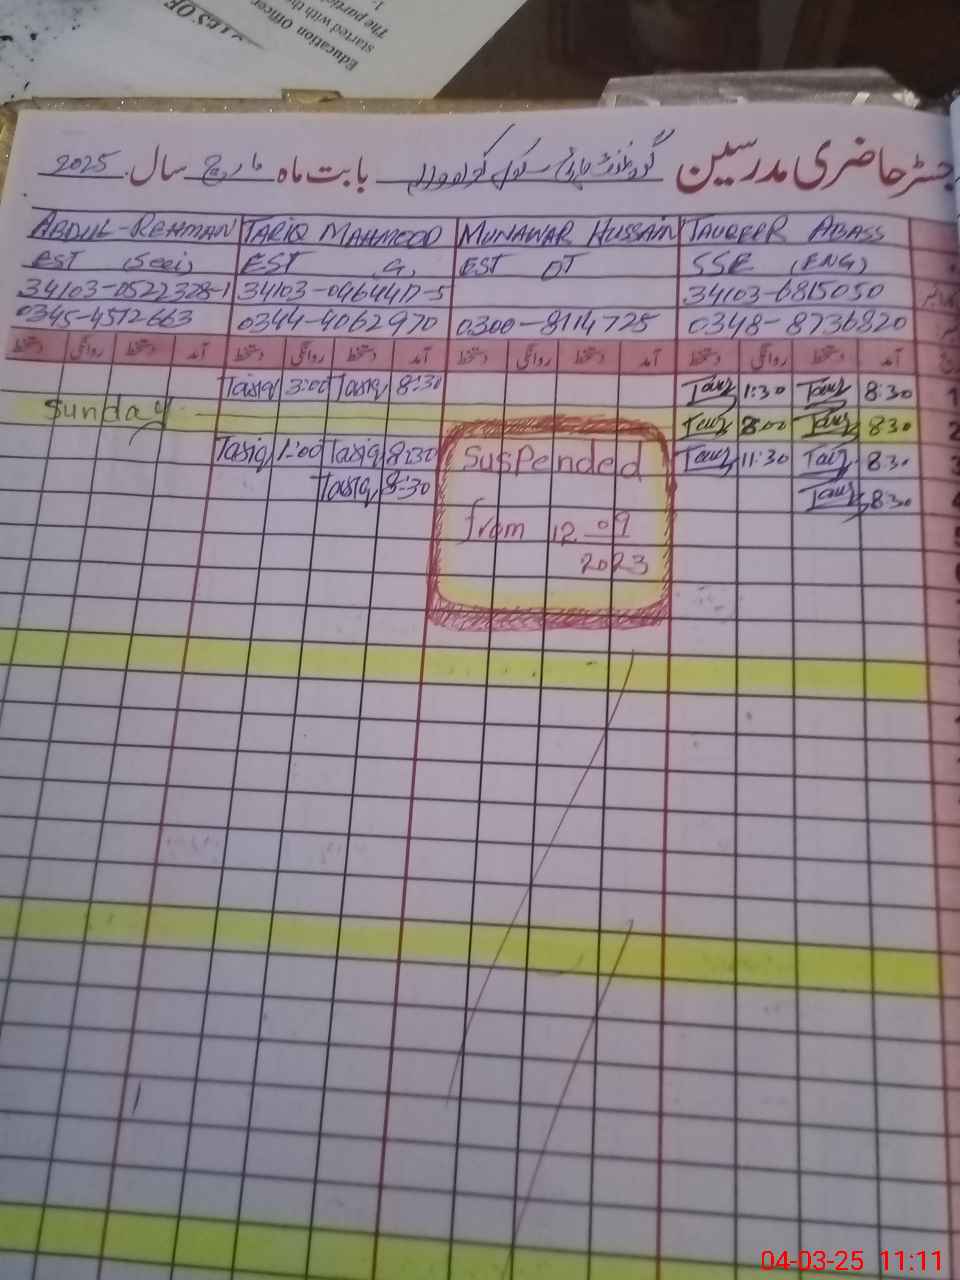 Education Officer
started with the
The parti
1-
جسٹر حاضری مدرسین گورنمنٹ ہائی سکول بابت ماہ مارچ سال 2025
ABDUL-REHMAN TARIQ MAHMOOD MUNAWAR HUSSAIN TAUQEER ABASS
EST (Sci) EST G, EST DT SSE (ENG)
34103-0522328-1 34103-0464417-5 34103-6815050
0345-4572663 0344-4062970 0300-8114725 0348-8736820
دستخط روانگی دستخط آمد دستخط روانگی دستخط آمد دستخط روانگی دستخط آمد دستخط روانگی دستخط آمد
Tariq 3:00 Tariq 8:30 Tauq 1:30 Tauq 8:30 1
Sunday Tauq 8:00 Tauq 830 2
Tariq 1:00 Tariq 8:30 Suspended Tauq 11:30 Tauq 8:30 3
Tariq 8:30 Tauq 8:30 4
from 12 09
2023
04-03-25 11:11